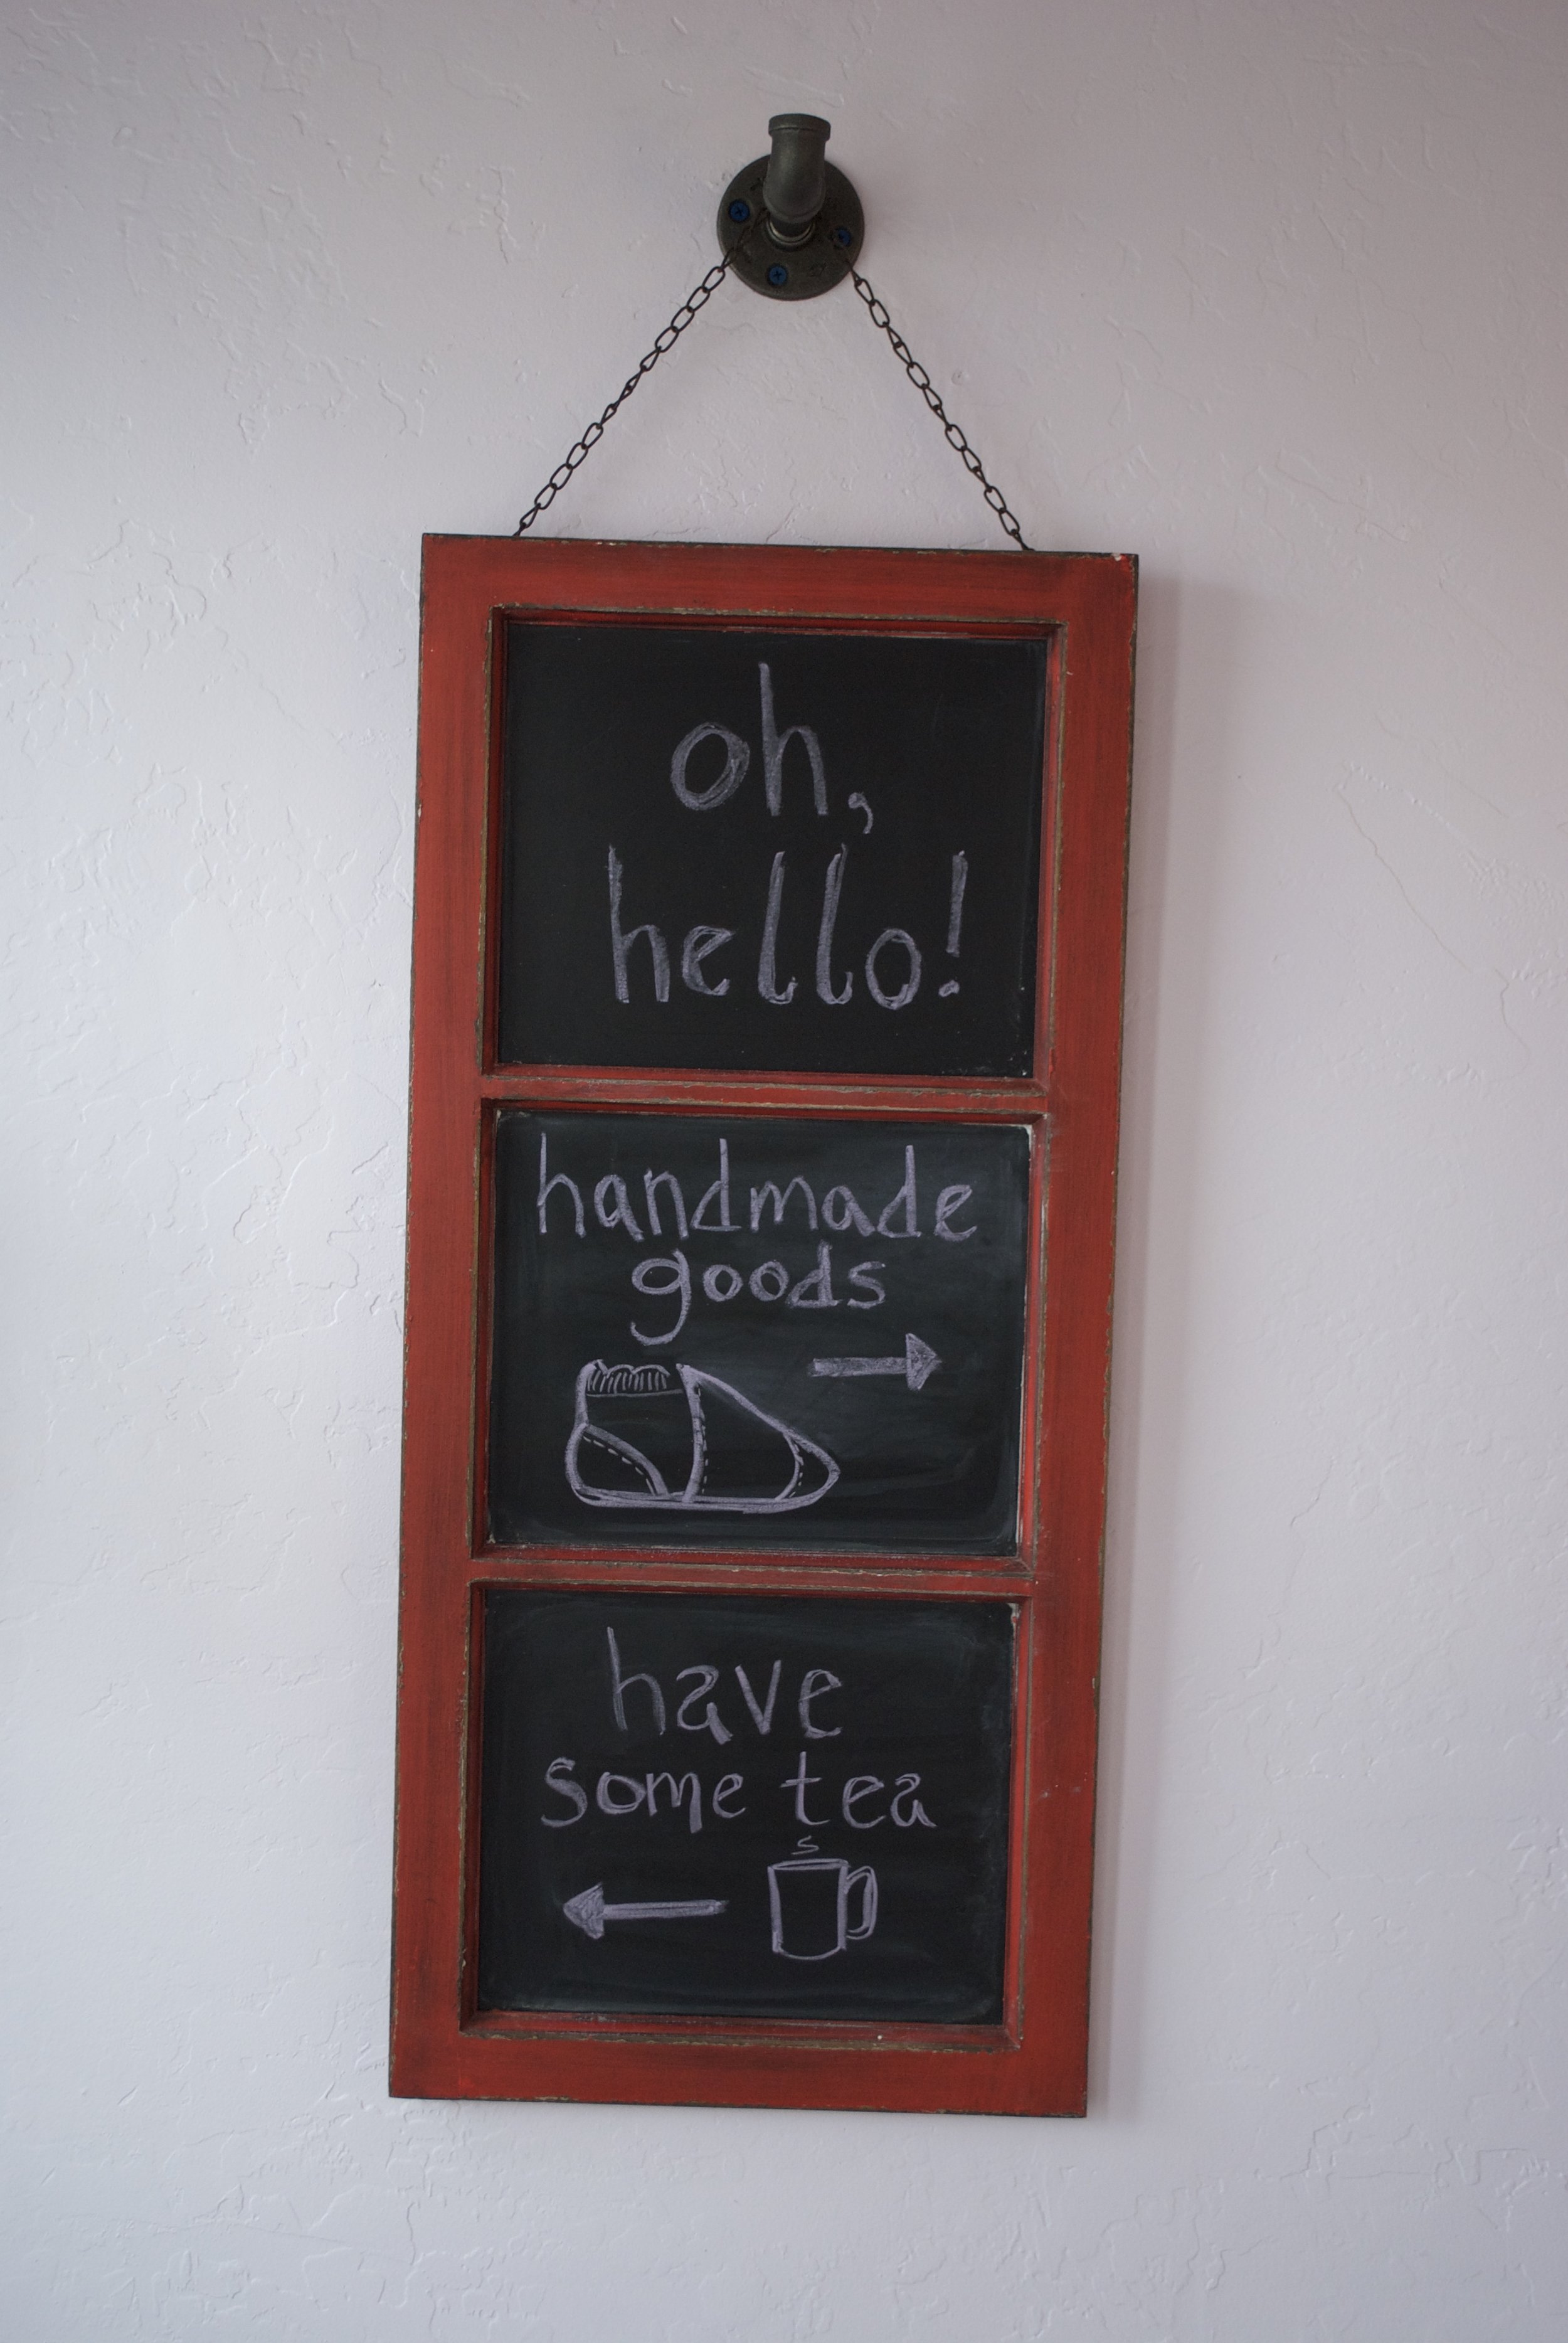 oh,
hello!
handmade
goods
have
some tea